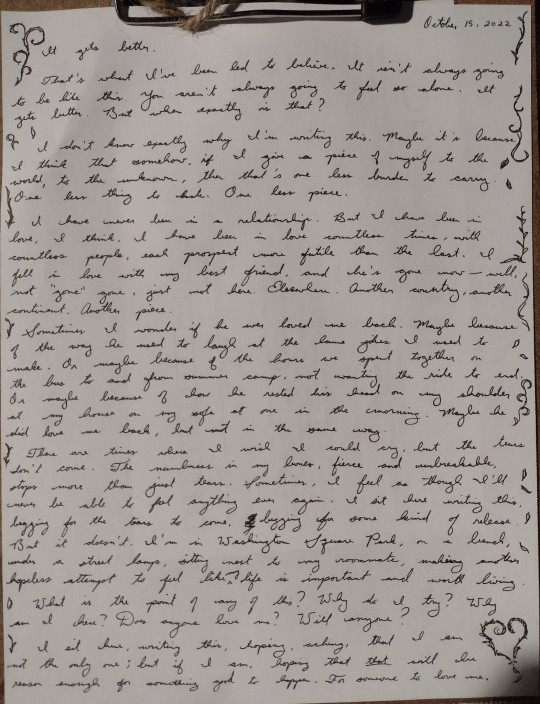 October 15, 2022
It gets better.
That's what I've been led to believe. It isn't always going
to be like this. You aren't always going to feel so alone. It
gets better. But when exactly is that?
I don't know exactly why I'm writing this. Maybe it's because
I think that somehow, if I give a piece of myself to the
world, to the unknown, then that's one less burden to carry.
One less thing to hate. One less piece.
I have never been in a relationship. But I have been in
love, I think. I have been in love countless times, with
countless people, each prospect more futile than the last. I
fell in love with my best friend, and he's gone now – well,
not "gone" gone, just not here. Elsewhere. Another country, another
continent. Another piece.
Sometimes I wonder if he ever loved me back. Maybe because
of the way he used to laugh at the lame jokes I used to
make. Or maybe because of the hours we spent together on
the bus to and from summer camp, not wanting the ride to end.
Or maybe because of how he rested his head on my shoulder
at my house on my sofa at one in the morning. Maybe he
did love me back, but not in the same way.
There are times where I wish I could cry, but the tears
don't come. The numbness in my bones, fierce and unbreakable,
stops more than just tears. Sometimes, I feel as though I'll
never be able to feel anything ever again. I sit here writing this,
begging for the tears to come, begging for some kind of release.
But it doesn't. I'm in Washington Square Park, on a bench,
under a street lamp, sitting next to my roommate, making another
hopeless attempt to feel like life is important and worth living.
What is the point of any of this? Why do I try? Why
am I here? Does anyone love me? Will anyone?
I sit here, writing this, hoping, aching, that I am
not the only one; but if I am, hoping that that will be
reason enough for something good to happen. For someone to love me.